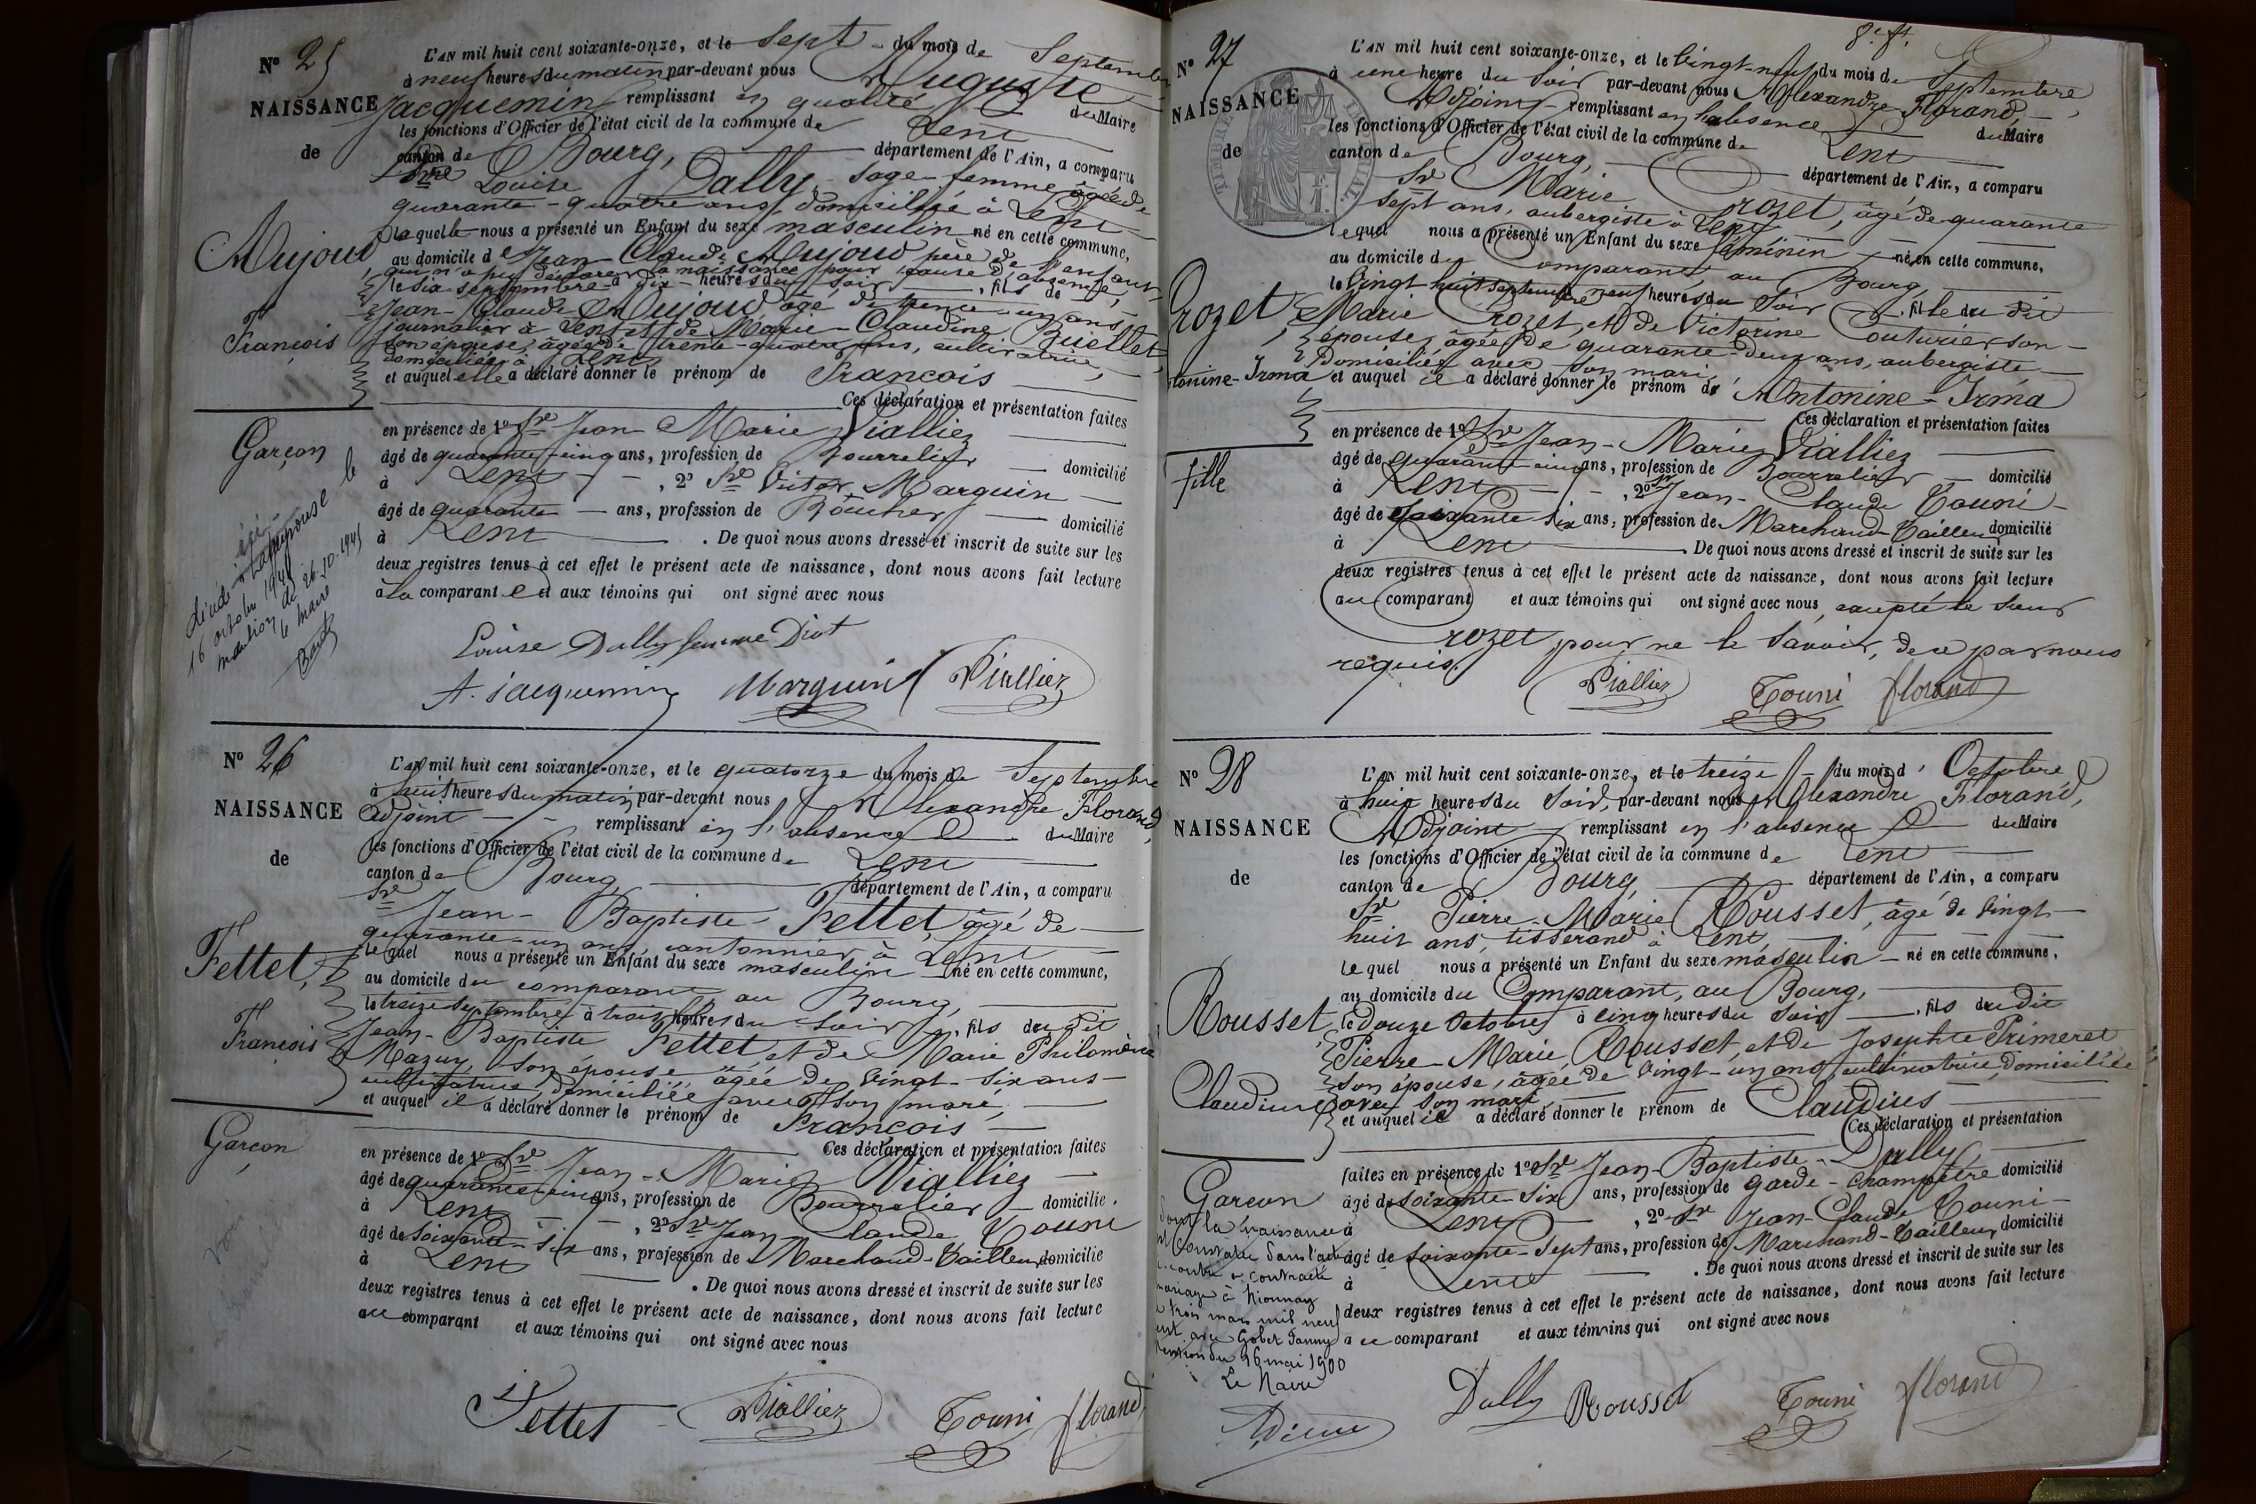 N° 25
NAISSANCE
de
Mujoud
François
Garçon
L'AN mil huit cent soixante-onze, et le Sept du mois de Septembre
à neuf heures du matin par-devant nous Auguste
Jacquemin remplissant en qualité du Maire
les fonctions d'Officier de l'état civil de la commune de Lent
canton de Bourg, département de l'Ain, a comparu
Louise Dally, sage-femme âgée de
quarante-quatre ans, domiciliée à Lent
laquelle nous a présenté un Enfant du sexe masculin né en cette commune,
au domicile de Jean-Claude Mujoud père de l'enfant,
qui n'a pu déclarer la naissance pour cause d'absence,
le six septembre à dix heures du soir, fils de
Jean-Claude Mujoud âgé de trente-un ans
journalier à Lent et de Marie-Claudine Buellet,
son épouse, âgée de trente-quatre ans, cultivatrice,
domiciliée à Lent
et auquel elle a déclaré donner le prénom de François
Ces déclaration et présentation faites
en présence de 1° Sr Jean Marie Vialliez
âgé de quarante-cinq ans, profession de Bourrelier domicilié
à Lent, 2° Sr Victor Marguin
âgé de quarante ans, profession de Boucher domicilié
à Lent. De quoi nous avons dressé et inscrit de suite sur les
deux registres tenus à cet effet le présent acte de naissance, dont nous avons fait lecture
à la comparante et aux témoins qui ont signé avec nous
Louise Dally femme Diot
A. Jacquemin Marguin Vialliez
décédé à
le
16 octobre 1945
mention du 26-10-1945
le Maire
N° 26
NAISSANCE
de
Fettet,
François
Garçon
L'AN mil huit cent soixante-onze, et le quatorze du mois de Septembre
à huit heures du matin par-devant nous Alexandre Florand,
adjoint remplissant en l'absence du Maire
les fonctions d'Officier de l'état civil de la commune de Lent
canton de Bourg, département de l'Ain, a comparu
Sr Jean-Baptiste Fettet, âgé de
quarante-un ans, cantonnier à Lent
lequel nous a présenté un Enfant du sexe masculin né en cette commune,
au domicile du comparant au Bourg,
le treize septembre à trois heures du soir, fils du dit
Jean-Baptiste Fettet, et de Marie Philomène
Mazuy, son épouse âgée de vingt-six ans
cultivatrice, domiciliée avec son mari,
et auquel il a déclaré donner le prénom de François
Ces déclaration et présentation faites
en présence de 1° Sr Jean-Marie Vialliez
âgé de quarante-cinq ans, profession de Bourrelier domicilié
à Lent, 2° Sr Jean-Claude Touni
âgé de soixante-six ans, profession de Marchand-Tailleur domicilié
à Lent. De quoi nous avons dressé et inscrit de suite sur les
deux registres tenus à cet effet le présent acte de naissance, dont nous avons fait lecture
au comparant et aux témoins qui ont signé avec nous
Fettet Vialliez Touni florand
N° 27
NAISSANCE
de
Crozet,
Antonine-Irma
fille
L'AN mil huit cent soixante-onze, et le vingt-neuf du mois de Septembre,
à une heure du soir par-devant nous Alexandre Florand,
Adjoint remplissant en l'absence du Maire
les fonctions d'Officier de l'état civil de la commune de Lent
canton de Bourg, département de l'Ain, a comparu
Sr Marie Crozet, âgé de quarante
sept ans, aubergiste à Lent
lequel nous a présenté un Enfant du sexe féminin né en cette commune,
au domicile du Comparant, au Bourg,
le vingt-huit septembre neuf heures du soir, fille du dit
Marie Crozet, et de Victorine Couturier, son
épouse, âgée de quarante-deux ans, aubergiste
domiciliée avec son mari,
et auquel il a déclaré donner le prénom de Antonine-Irma
Ces déclaration et présentation faites
en présence de 1° Sr Jean-Marie Vialliez
âgé de quarante-cinq ans, profession de Bourrelier domicilié
à Lent, 2° Sr Jean-Claude Touni
âgé de soixante six ans, profession de Marchand-Tailleur domicilié
à Lent. De quoi nous avons dressé et inscrit de suite sur les
deux registres tenus à cet effet le présent acte de naissance, dont nous avons fait lecture
au comparant et aux témoins qui ont signé avec nous, excepté le sieur
Crozet, pour ne le savoir, de ce par nous
requis.
Vialliez Touni florand
N° 28
NAISSANCE
de
Rousset,
Claudius
Garçon
L'AN mil huit cent soixante-onze, et le treize du mois d'Octobre
à huit heures du soir, par-devant nous Alexandre Florand,
Adjoint remplissant en l'absence du Maire
les fonctions d'Officier de l'état civil de la commune de Lent
canton de Bourg, département de l'Ain, a comparu
Sr Pierre-Marie Rousset, âgé de vingt-
huit ans, tisserand à Lent,
lequel nous a présenté un Enfant du sexe masculin né en cette commune,
au domicile du Comparant, au Bourg,
le Douze Octobre à cinq heures du soir, fils du dit
Pierre-Marie Rousset, et de Josephte Primeret
son épouse, âgée de vingt-un ans, cultivatrice, domiciliée
avec son mari,
et auquel il a déclaré donner le prénom de Claudius
Ces déclaration et présentation
faites en présence de 1° Sr Jean-Baptiste Dally, domicilié
âgé de soixante-six ans, profession de Garde-Champêtre
à Lent, 2° Sr Jean-Claude Touni
âgé de soixante-sept ans, profession de Marchand-Tailleur domicilié
à Lent. De quoi nous avons dressé et inscrit de suite sur les
deux registres tenus à cet effet le présent acte de naissance, dont nous avons fait lecture
à ce comparant et aux témoins qui ont signé avec nous
Dally Rousset Touni florand
dont la naissance
est constatée dans l'acte
ci-contre a contracté
mariage à Mionnay
le trois mars mil neuf
cent avec Gobet Fanny
Mention du 26 mai 1900
Le Maire